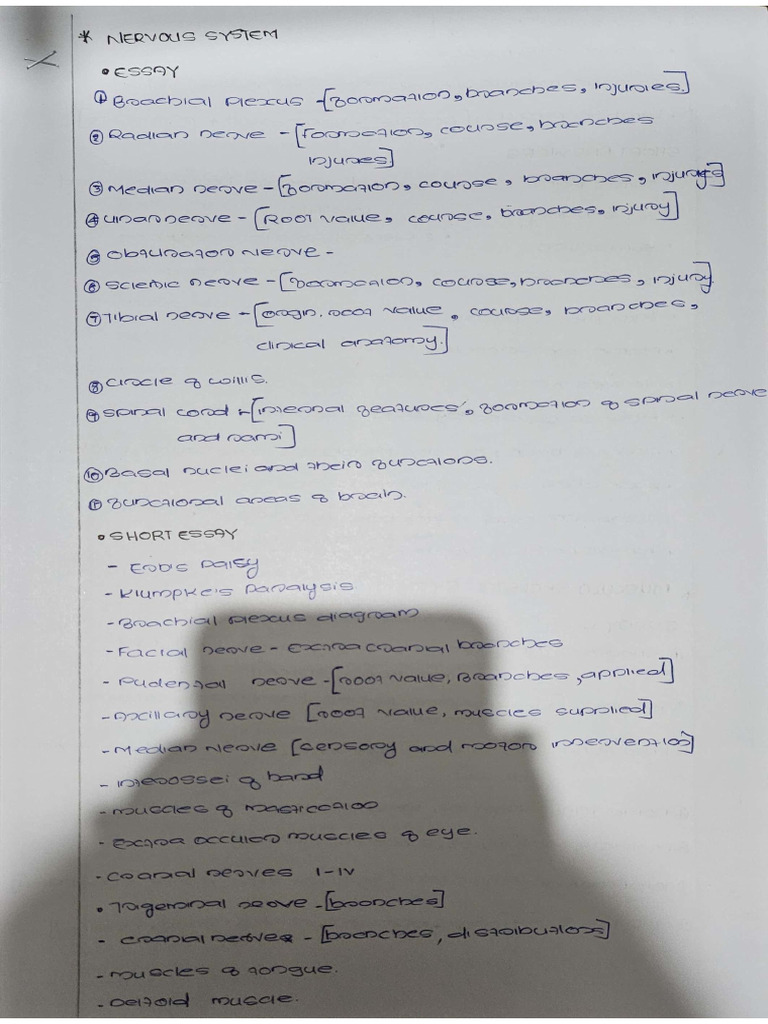 * NERVOUS SYSTEM
• ESSAY
① Brachial Plexus - [Formation, branches, Injuries.]
② Radial nerve - [Formation, course, branches
Injuries]
③ Median nerve - [Formation, course, branches, Injuries]
④ Ulnar nerve - [Root value, course, branches, injury]
⑤ Obturator Nerve -
⑥ Sciatic nerve - [Formation, course, branches, injury]
⑦ Tibial nerve - [origin, root value, course, branches,
clinical anatomy.]
⑧ Circle of Willis.
⑨ Spinal cord - [internal features, formation of spinal nerve
and rami]
⑩ Basal nuclei and their functions.
⑪ Functional areas of brain.
• SHORT ESSAY
- Erb's Palsy
- Klumpke's Paralysis
- Brachial Plexus diagram
- Facial nerve - Extra cranial branches
- Pudental nerve - [root value, Branches, applied]
- Axillary nerve [root value, muscles supplied]
- Median Nerve [Sensory and motor innervention]
- interossei of hand
- muscles of mastication
- Extra occular muscles of eye.
- Cranial nerves I-IV
• Trigeminal nerve - [branches]
- cranial nerves - [branches, distributions]
- muscles of tongue.
- Deltoid muscle.